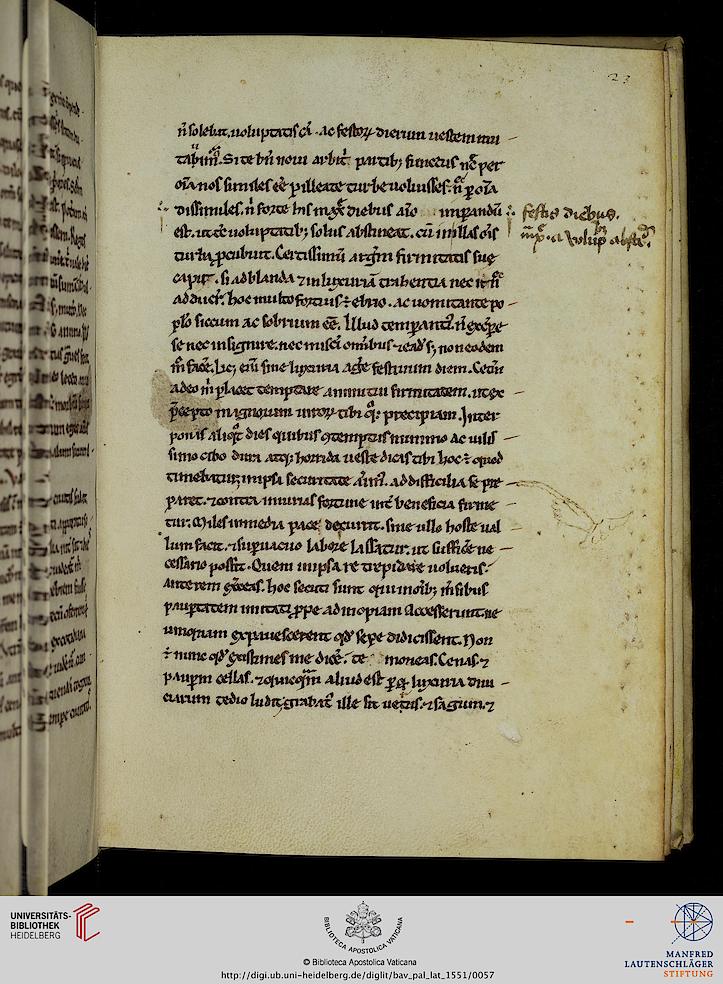 23
ñ solebat. uoluptatis cā. ac festoꝝ dierum uestem mu
tabim⁹. Si te bñ noui arbit̄ partibꝫ functus nec per
oīa nos similes eē pilleate turbe uoluisses. ñ ꝑ oīa
dissimiles. ñ forte his maxͤ diebus aīo imperandū
est. ut tc̄ uoluptatibꝫ solus abstineat. cū in illas oīs
turba ꝓcubuit. Certissimū argm̄ firmitatis suę
capit. si ad blanda ⁊ in luxuriā trahentia nec it nͨ
adducit̄. hoc multo fortius ē ebrio. ac uomitante po
pl̄o siccum ac sobrium eē. Illud temperanti᷒. ñ excerpe
se nec insignire. nec misceri omībus ⁊ eadē sꝫ non eodem
m̊ facͤe. Licꝫ eīm sine luxuria agͤe festum diem. Cetm̄
adeo m̄ placet temptare animi tui firmitatem. ut ex
p̄cepto magnorum uiroꝝ tibi qͦꝫ precipiam. Inter
ponas aliqͦt dies quibus ꝯtemptus minimo ac uilis
simo cibo dura atqꝫ horrida ueste dicas tibi hoc ē quod
timebatur. in ipsa securitate aīm᷒. ad difficilia se pre
paret. ⁊ contra iniurias fortune int̄ beneficia firme
tur. Miles in media pace decurrit. sine ullo hoste ual
lum facit. ⁊ suꝑuacuo labore lassatur. ut sufficͤe ne
cessario possit. Quem in ipsa re trepidare nolueris.
ante rem exͤceas. hoc secuti sunt qui om̄ibꝫ m̄sibus
pauꝑtatem imitati ꝓpe ad inopiam accesserunt. ne
umquam expauescerent qd̄ sepe didicissent. Non
ē nunc qd̄ existimes me dicͤe. te moneas. Cenas. ⁊
pauꝑm cellas. ⁊ quicqͥm aliud est ꝑ qd̄ luxuria diui
ciarum tedio ludit. grabat᷒ ille sit uerus. ⁊ sagum. ⁊
festis diebus.
UNIVERSITÄTS-
BIBLIOTHEK
HEIDELBERG
BIBLIOTECA APOSTOLICA VATICANA
© Biblioteca Apostolica Vaticana
http://digi.ub.uni-heidelberg.de/diglit/bav_pal_lat_1551/0057
MANFRED
LAUTENSCHLÄGER
STIFTUNG